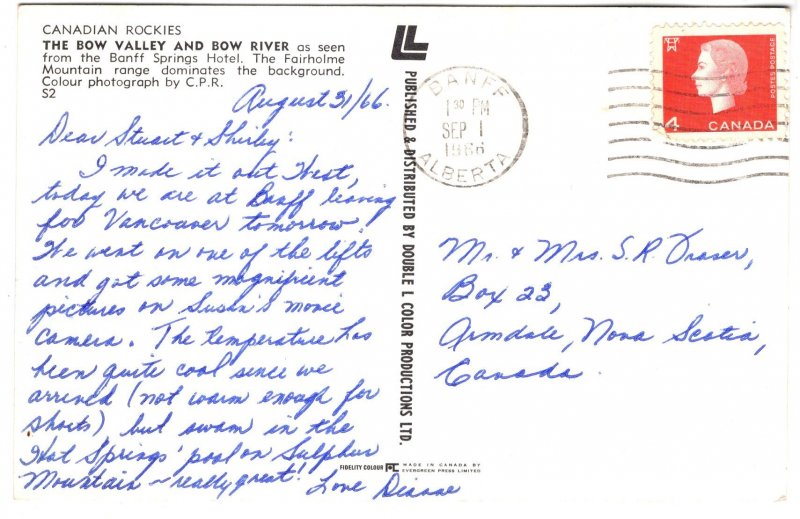 CANADIAN ROCKIES
THE BOW VALLEY AND BOW RIVER as seen
from the Banff Springs Hotel. The Fairholme
Mountain range dominates the background.
Colour photograph by C.P.R.
S2
August 31/66.
Dear Stuart & Shirley:
I made it out West,
today we are at Banff leaving
for Vancouver tomorrow.
We went on one of the lifts
and got some magnificent
pictures on Susan's movie
camera. The temperature has
been quite cool since we
arrived (not warm enough for
shorts) but swam in the
Hot Springs' pool on Sulphur
Mountain – really great!
Love Dianne
PUBLISHED & DISTRIBUTED BY DOUBLE L COLOR PRODUCTIONS LTD.
FIDELITY COLOUR
MADE IN CANADA BY
EVERGREEN PRESS LIMITED
BANFF
1 30 PM
SEP 1
1966
ALBERTA
POSTES POSTAGE
4 CANADA
Mr. & Mrs. S.R. Fraser,
Box 23,
Armdale, Nova Scotia,
Canada.